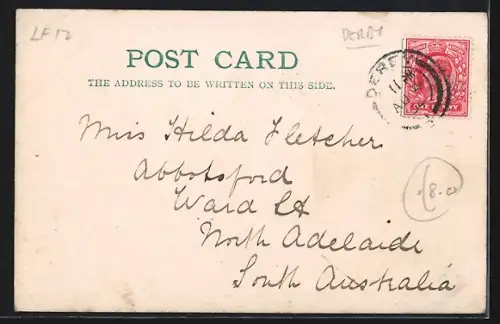 LF 12
DERBY
POST CARD
THE ADDRESS TO BE WRITTEN ON THIS SIDE.
DERBY
11
AU
Miss Hilda Fletcher
Abbotsford
Ward St
North Adelaide
South Australia